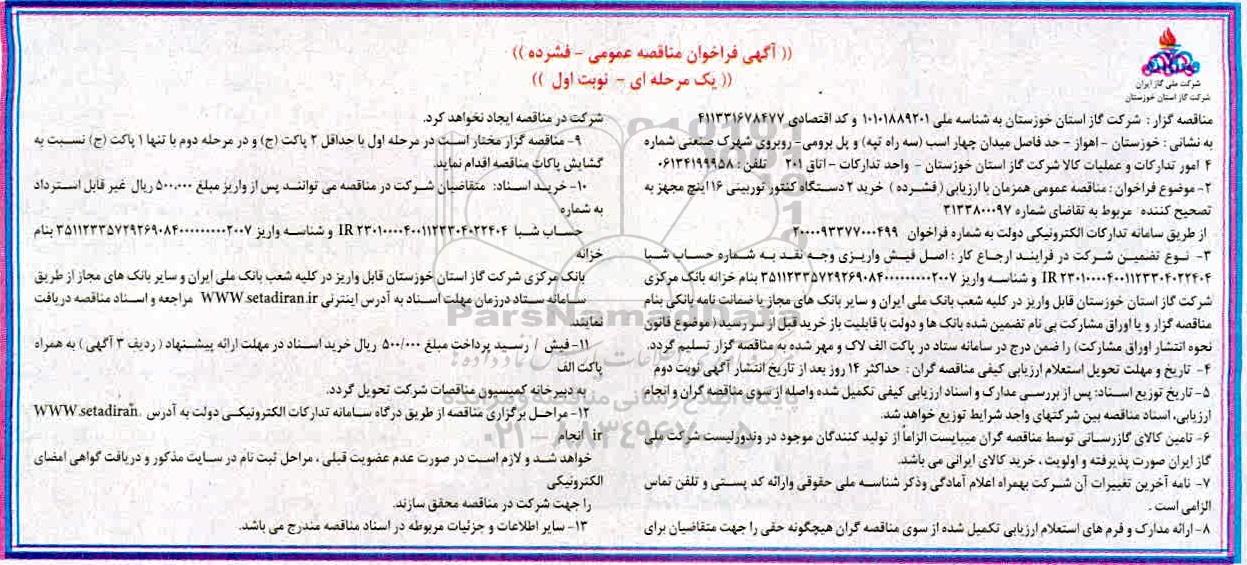 (( آگهی فراخوان مناقصه عمومی - فشرده ))
(( یک مرحله ای - نوبت اول ))
شرکت ملی گاز ایران
شرکت گاز استان خوزستان
مناقصه گزار : شرکت گاز استان خوزستان به شناسه ملی ۱۰۱۰۱۸۸۹۲۰۱ و کد اقتصادی ۴۱۱۳۳۱۶۷۸۴۷۷
به نشانی : خوزستان - اهواز - حد فاصل میدان چهار اسب (سه راه تپه) و پل برومی- روبروی شهرک صنعتی شماره
۴ امور تدارکات و عملیات کالا شرکت گاز استان خوزستان - واحد تدارکات - اتاق ۲۰۱ تلفن : ۰۶۱۳۴۱۹۹۹۵۸
۲- موضوع فراخوان : مناقصه عمومی همزمان با ارزیابی ( فشرده ) خرید ۲ دستگاه کنتور توربینی ۱۶ اینچ مجهز به
تصحیح کننده مربوط به تقاضای شماره ۳۱۳۳۸۰۰۰۹۷
از طریق سامانه تدارکات الکترونیکی دولت به شماره فراخوان ۲۰۰۰۰۹۳۳۷۷۰۰۰۴۹۹
۳- نوع تضمین شرکت در فرایند ارجاع کار : اصل فیش واریزی وجه نقد به شماره حساب شبا
IR ۲۳۰۱۰۰۰۰۴۰۰۱۱۲۳۳۰۴۰۲۲۴۰۴ و شناسه واریز ۳۵۱۱۲۳۳۵۷۲۹۲۶۹۰۸۴۰۰۰۰۰۰۰۰۰۰۲۰۰۷ بنام خزانه بانک مرکزی
شرکت گاز استان خوزستان قابل واریز در کلیه شعب بانک ملی ایران و سایر بانک های مجاز یا ضمانت نامه بانکی بنام
مناقصه گزار و یا اوراق مشارکت بی نام تضمین شده بانک ها و دولت با قابلیت باز خرید قبل از سر رسید ( موضوع قانون
نحوه انتشار اوراق مشارکت) را ضمن درج در سامانه ستاد در پاکت الف لاک و مهر شده به مناقصه گزار تسلیم گردد.
۴- تاریخ و مهلت تحویل استعلام ارزیابی کیفی مناقصه گران : حداکثر ۱۴ روز بعد از تاریخ انتشار آگهی نوبت دوم
۵- تاریخ توزیع اسناد: پس از بررسی مدارک و اسناد ارزیابی کیفی تکمیل شده واصله از سوی مناقصه گران و انجام
ارزیابی، اسناد مناقصه بین شرکتهای واجد شرایط توزیع خواهد شد.
۶- تامین کالای گازرسانی توسط مناقصه گران میبایست الزاماً از تولید کنندگان موجود در وندورلیست شرکت ملی
گاز ایران صورت پذیرفته و اولویت ، خرید کالای ایرانی می باشد.
۷- نامه آخرین تغییرات آن شرکت بهمراه اعلام آمادگی وذکر شناسه ملی حقوقی وارائه کد پستی و تلفن تماس
الزامی است .
۸- ارائه مدارک و فرم های استعلام ارزیابی تکمیل شده از سوی مناقصه گران هیچگونه حقی را جهت متقاضیان برای
شرکت در مناقصه ایجاد نخواهد کرد.
۹- مناقصه گزار مختار است در مرحله اول با حداقل ۲ پاکت (ج) و در مرحله دوم با تنها ۱ پاکت (ج) نسبت به
گشایش پاکات مناقصه اقدام نماید.
۱۰- خرید اسناد: متقاضیان شرکت در مناقصه می توانند پس از واریز مبلغ ۵۰۰،۰۰۰ ریال غیر قابل استرداد
به شماره
حساب شبا IR ۲۳۰۱۰۰۰۰۴۰۰۱۱۲۳۳۰۴۰۲۲۴۰۴ و شناسه واریز ۳۵۱۱۲۳۳۵۷۲۹۲۶۹۰۸۴۰۰۰۰۰۰۰۰۰۰۲۰۰۷ بنام
خزانه
بانک مرکزی شرکت گاز استان خوزستان قابل واریز در کلیه شعب بانک ملی ایران و سایر بانک های مجاز از طریق
سامانه ستاد درزمان مهلت اسناد به آدرس اینترنتی WWW.setadiran.ir مراجعه و اسناد مناقصه دریافت
نمایند.
۱۱- فیش / رسید پرداخت مبلغ ۵۰۰/۰۰۰ ریال خرید اسناد در مهلت ارائه پیشنهاد ( ردیف ۳ آگهی ) به همراه
پاکت الف
به دبیرخانه کمیسیون مناقصات شرکت تحویل گردد.
۱۲- مراحل برگزاری مناقصه از طریق درگاه سامانه تدارکات الکترونیکی دولت به آدرس WWW.setadiran.
ir انجام
خواهد شد و لازم است در صورت عدم عضویت قبلی ، مراحل ثبت نام در سایت مذکور و دریافت گواهی امضای
الکترونیکی
را جهت شرکت در مناقصه محقق سازند.
۱۳- سایر اطلاعات و جزئیات مربوطه در اسناد مناقصه مندرج می باشد.
ParsNamadData
۰۲۱-۸۸۳۴۹۶۷۰-۵